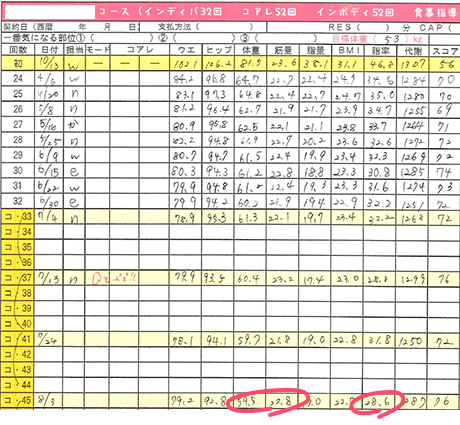 コース (インディバ32回 コアレ52回 インボディ52回 食事指導
契約日(西暦 年 月 日) 支払方法( ) RES( )分 CAP(
一番気になる部位①( ) ②( ) ③( ) 目標体重( 53 )kg
回数 日付 担当 モード コアレ ウエ ヒップ 体重 筋量 脂量 BMI 脂率 代謝 スコア
初 10/13 w — — — — 102.1 106.2 81.5 23.6 38.1 31.1 46.8 1307 56
24 4/6 w 84.2 96.8 64.7 22.7 22.4 24.7 34.6 1284 70
25 4/20 n 83.1 97.3 64.8 22.4 22.7 24.7 35.0 1280 70
26 5/8 n 81.2 96.4 62.7 21.9 21.7 23.9 34.7 1255 69
27 5/16 80.9 95.8 62.5 22.1 21.1 23.8 33.7 1264 71
28 5/25 n 82.2 94.8 61.9 22.7 20.2 23.6 32.6 1272 72
29 6/9 w 80.7 94.7 61.5 22.4 19.9 23.4 32.3 1269 72
30 6/15 e 80.3 94.3 61.2 22.8 18.8 23.3 30.8 1285 74
31 6/22 w 79.9 94.8 61.2 22.4 19.3 23.3 31.6 1274 73
32 6/30 e 79.9 94.2 60.2 21.9 19.4 22.9 32.2 1251 72
コ・33 7/4 n 78.9 95.3 61.3 22.1 19.7 23.4 32.2 1268 72
コ・34
コ・35
コ・36
コ・37 7/13 n 79.9 93.5 60.4 23.2 17.4 23.0 28.8 1299 76
コ・38
コ・39
コ・40
コ・41 7/24 78.1 94.1 59.7 21.8 19.0 22.8 31.8 1250 72
コ・42
コ・43
コ・44
コ・45 8/3 79.2 92.8 59.5 22.8 28.6 76